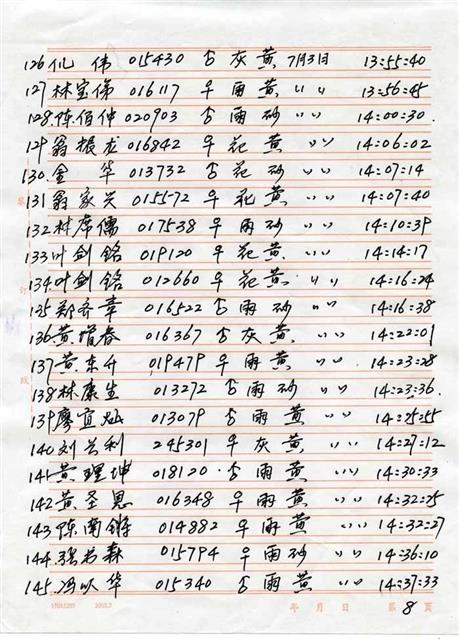 126 仉 伟 015430 合 灰 黄 7月3日 13:55:40
127 林宝俤 016117 早 雨 黄 〃 13:56:45
128 陈佰仲 020903 合 雨 砂 〃 14:00:30
129 翁振龙 016842 早 花 黄 〃 14:06:02
130 金 华 013732 合 花 砂 〃 14:07:14
131 翁家兴 015572 早 花 黄 〃 14:07:40
132 林席儒 017538 早 雨 砂 〃 14:10:39
133 叶剑铭 019120 早 花 黄 〃 14:14:17
134 叶剑铭 012660 早 花 黄 〃 14:16:24
135 郑齐章 016522 合 雨 砂 〃 14:16:38
136 黄增春 016367 合 灰 黄 〃 14:22:01
137 黄东升 019479 早 雨 黄 〃 14:23:28
138 林康生 013272 合 雨 砂 〃 14:23:36
139 廖宜灿 013079 合 雨 黄 〃 14:25:55
140 刘兴利 245301 早 灰 黄 〃 14:27:12
141 黄理坤 018120 合 雨 黄 〃 14:30:33
142 黄圣恩 016348 早 雨 黄 〃 14:32:25
143 陈 锵 014882 早 雨 黄 〃 14:32:27
144 张若森 015794 早 雨 砂 〃 14:36:10
145 冯以华 015340 合 雨 黄 〃 14:37:33
年 月 日 第 8 页